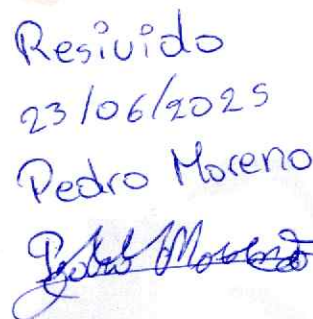 Resivido
23/06/2025
Pedro Moreno
Pedro Moreno